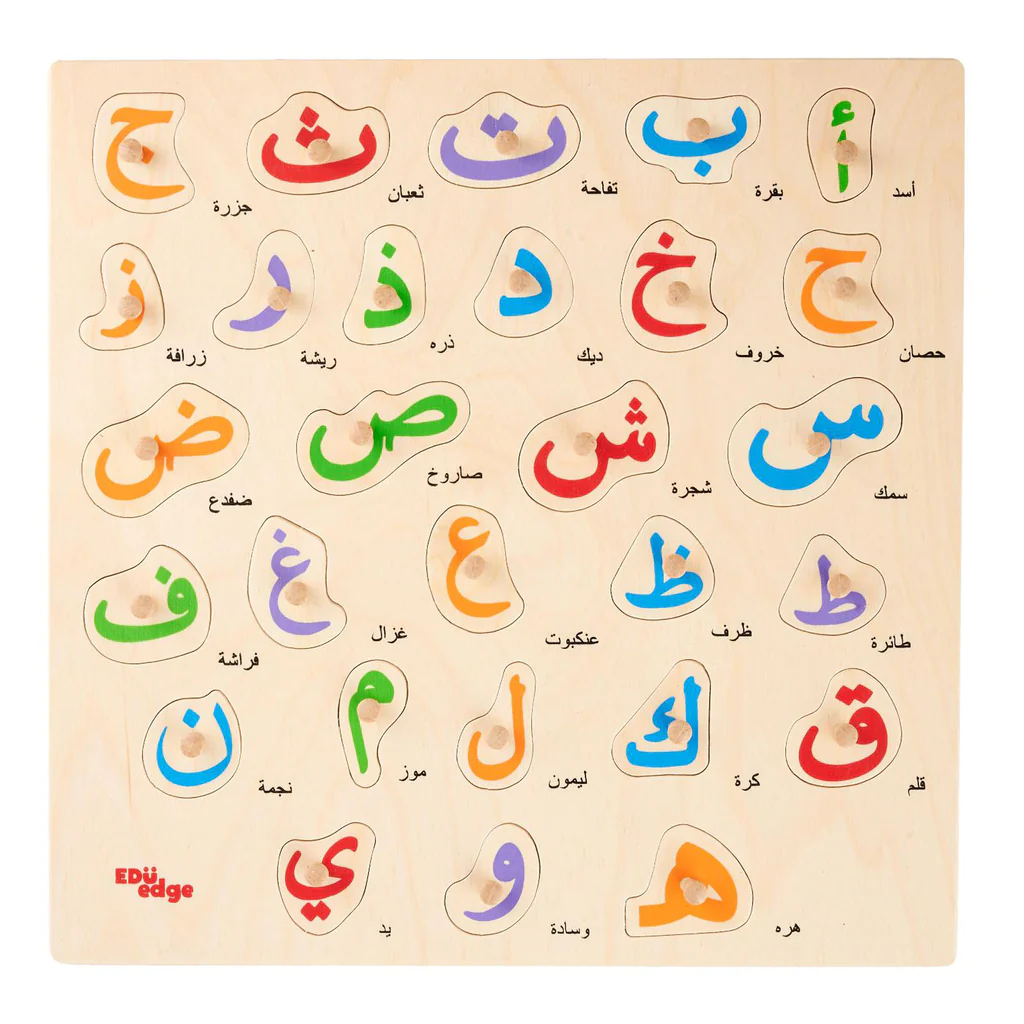 أ ب ت ث ج
أسد بقرة تفاحة ثعبان جزرة
ح خ د ذ ر ز
حصان خروف ديك ذره ريشة زرافة
س ش ص ض
سمك شجرة صاروخ ضفدع
ط ظ ع غ ف
طائرة ظرف عنكبوت غزال فراشة
ق ك ل م ن
قلم كرة ليمون موز نجمة
ه و ي
هره وسادة يد
EDÜ
edge